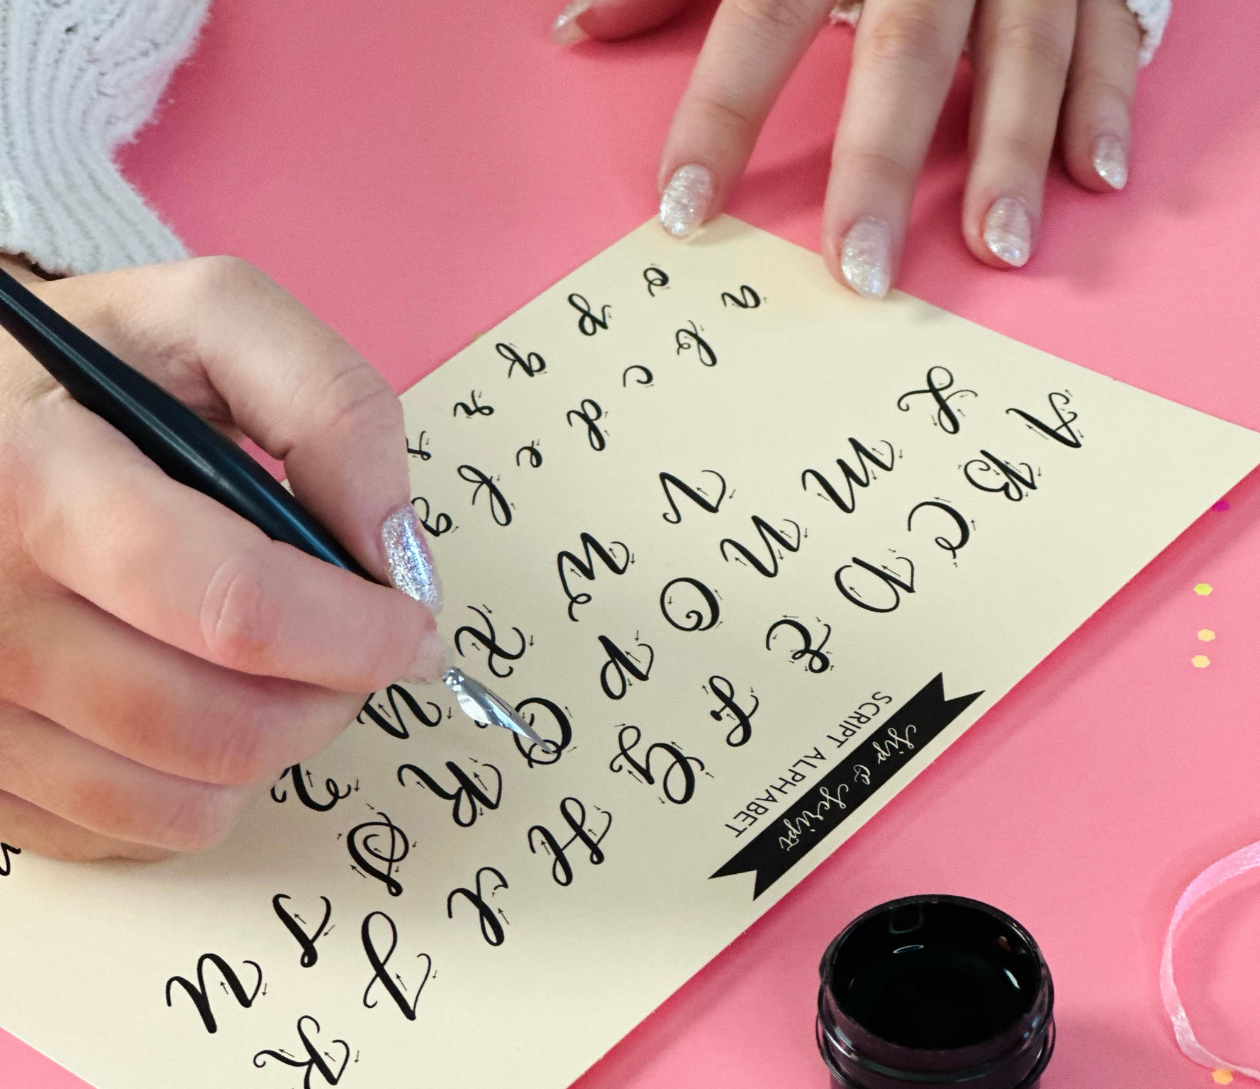 Sip & Script
SCRIPT ALPHABET
A B C D E F G H I J K
L M N O P Q R S T U
V W X Y Z
a b c d e f g
o p q r s